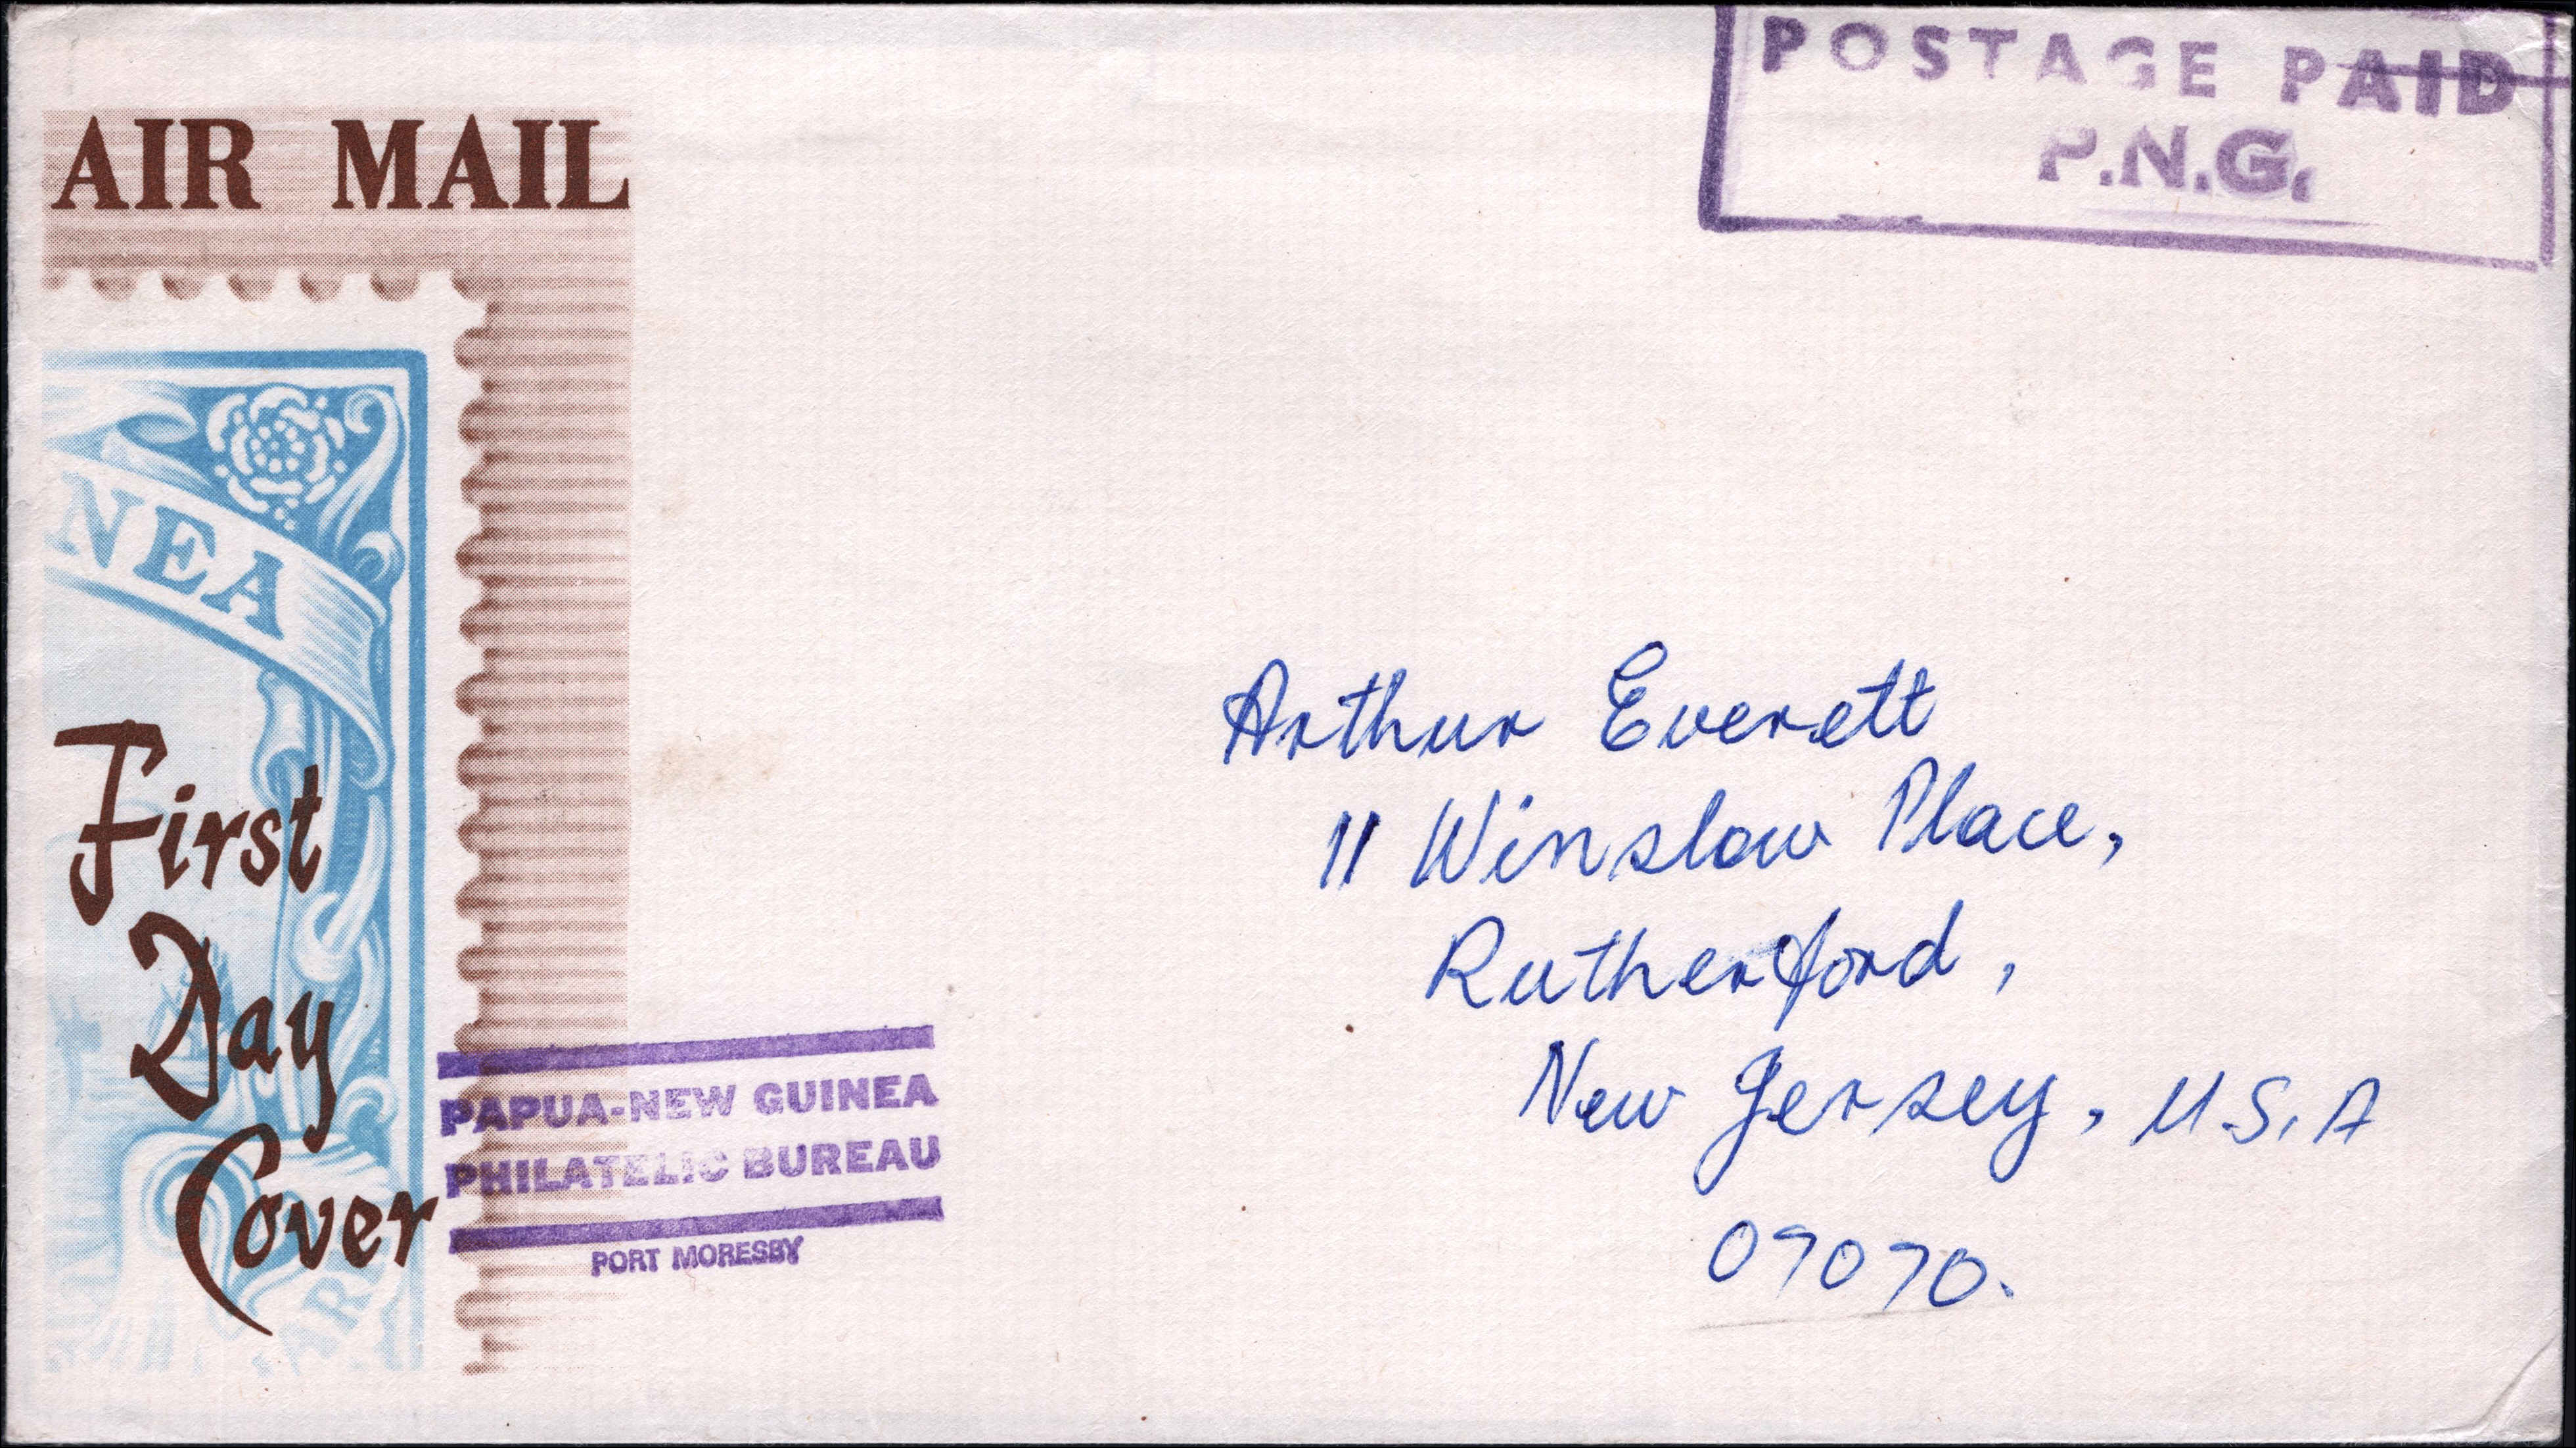 POSTAGE PAID
P.N.G.
AIR MAIL
NEA
First
Day
Cover
PAPUA-NEW GUINEA
PHILATELIC BUREAU
PORT MORESBY
Arthur Everett
11 Winslow Place,
Rutherford,
New Jersey, U.S.A
07070.